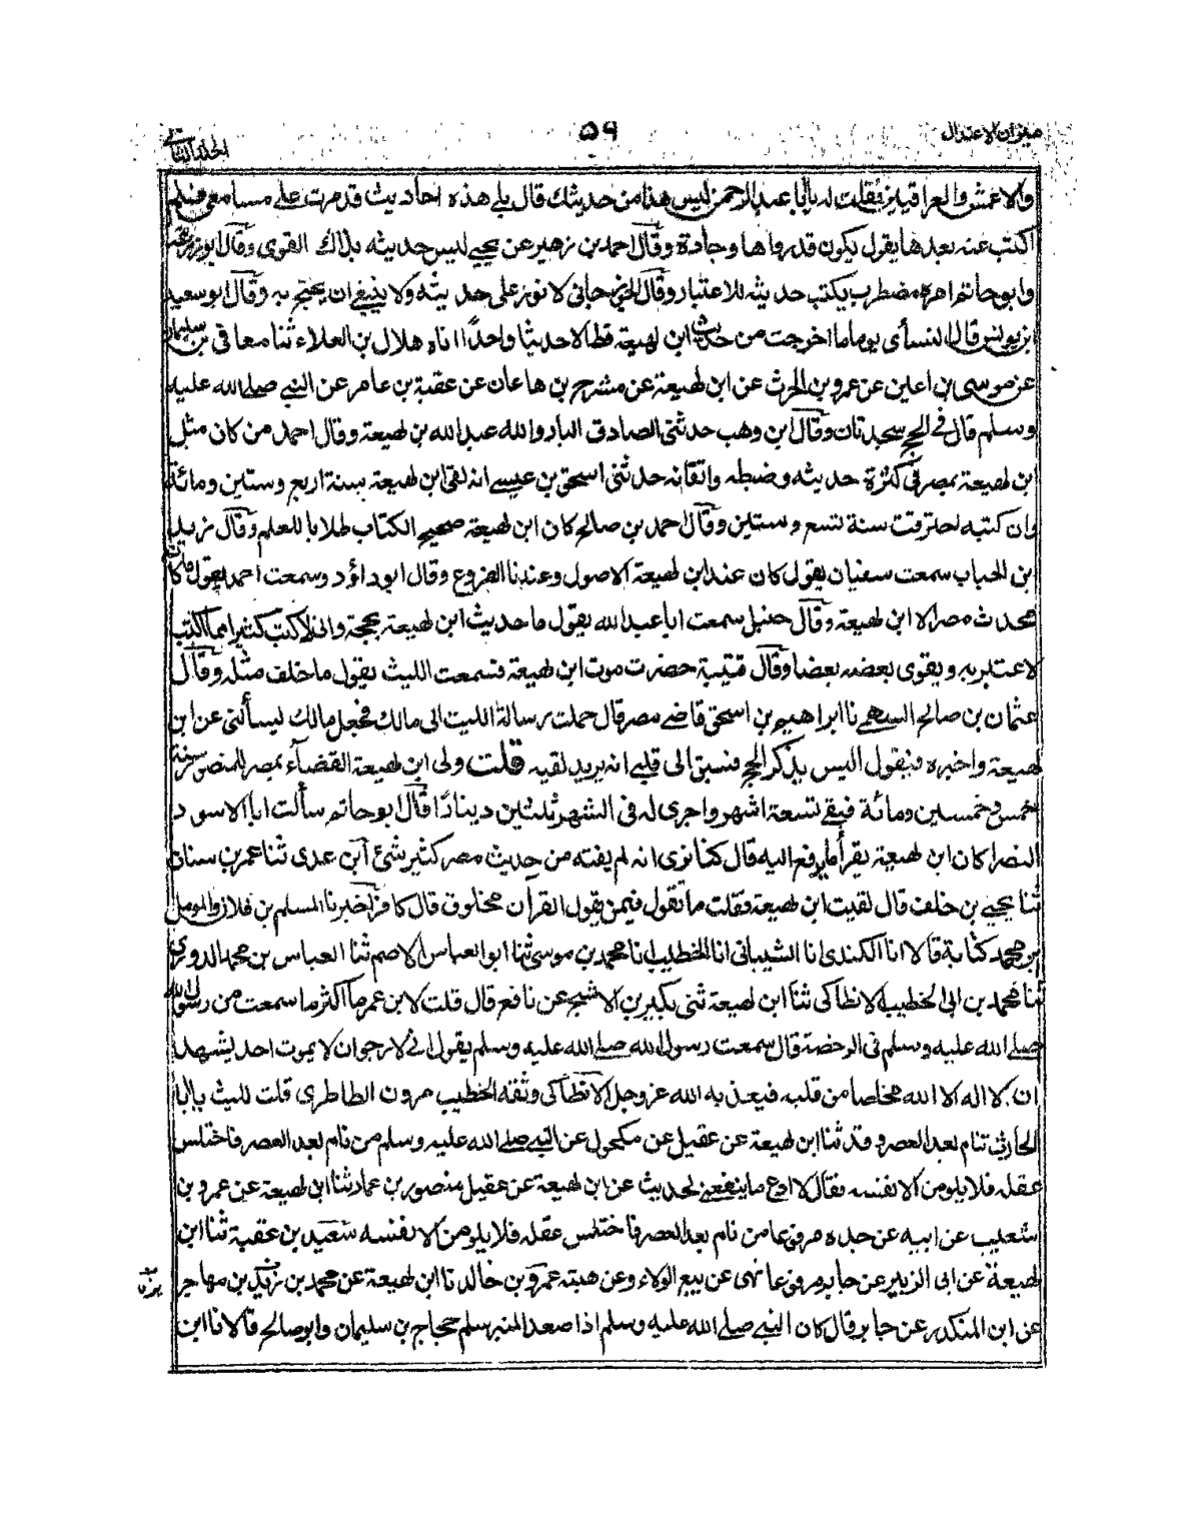 ميزان الاعتدال
٥٩
الجلد الثاني
والاعمش والعراقيين فقلت له يا ابا عبد الرحمن ليس هذا من حديثك قال بلے هذه احاديث قد مرت علے مسامعی فلم
اكتب عنه بعدها يقول يكون قد رواها وجادة وقال احمد بن زهير عن يحيے ليس حديثه بذاك القوى وقال ابو زرعة
وابو حاتم امره مضطرب يكتب حديثه للاعتبار وقال الجوزجانی لا نور علی حديثه ولا ينبغے ان يحتج به وقال ابو سعيد
ابن يونس قال النسأی يوما ما اخرجت من حديث ابن لهيعة قط الا حديثا واحدًا اناه هلال بن العلاء ثنا معافی بن سليمان
عن موسی بن اعين عن عمرو بن الحرث عن ابن لهيعة عن مشرح بن هاعان عن عقبة بن عامر عن النبے صلے الله عليه
وسلم قال فے الحج سجدتان وقال ابن وهب حدثنی الصادق البار والله عبد الله بن لهيعة وقال احمد من كان مثل
ابن لهيعة بمصر فی كثرة حديثه وضبطه واتقانه حدثنی اسحق بن عيسے انه لقی ابن لهيعة سنة اربع وستين ومائة
وان كتبه احترقت سنة تسع وستين وقال احمد بن صالح كان ابن لهيعة صحيح الكتاب طلابا للعلم وقال زيد
بن الحباب سمعت سفيان يقول كان عند ابن لهيعة الاصول وعندنا الفروع وقال ابو داؤد وسمعت احمد يقول ما كان
محدث مصر الا ابن لهيعة وقال حنبل سمعت ابا عبد الله يقول ما حديث ابن لهيعة بحجة وانی لاكتب كثيرا مما اكتب
لاعتبر به ويقوی بعضه بعضا وقال قتيبة حضرت موت ابن لهيعة فسمعت الليث يقول ما خلف مثله وقال
عثمان بن صالح السهمے نا ابراهيم بن اسحق قاضے مصر قال حملت رسالة الليث الی مالك فجعل مالك يسألنی عن ابن
لهيعة واخبره فيقول اليس يذكر الحج فسبق الی قلبے انه يريد لقيه قلت ولی ابن لهيعة القضآء بمصر للمنصور سنة
خمس وخمسين ومائة فبقے تسعة اشهر واجری له فی الشهر ثلثين دينارًا قال ابو حاتم سألت ابا الاسود
النضر اكان ابن لهيعة يقرأ ما يرفع اليه قال كنا نری انه لم يفته من حديث مصر كثير شئ ابن عدی ثنا عمر بن سنان
ثنا يحيے بن خلف قال لقيت ابن لهيعة فقلت ما تقول فيمن يقول القرأن مخلوق قال كافر اخبرنا المسلم بن فلان والمومل
بن محمد كتابة قالا انا الكندی انا الشيبانی انا الخطيب انا محمد بن موسی ثنا ابو العباس الاصم ثنا العباس بن محمد الدوری
ثنا محمد بن ابی الخطيب الانطاكی ثنا ابن لهيعة ثنی بكير بن الاشج عن نافع قال قلت لابن عمر ما اكثر ما سمعت من رسول الله
صلے الله عليه وسلم فی الرخصة قال سمعت رسول الله صلے الله عليه وسلم يقول انے لارجو ان لا يموت احد يشهد
ان لا اله الا الله مخلصا من قلبه فيعذبه الله عز وجل الانطاكی وثقه الخطيب مرون الطاطری قلت لليث يا ابا
الحارث تنام بعد العصر وقد ثنا ابن لهيعة عن عقيل عن مكحول عن النبے صلے الله عليه وسلم من نام بعد العصر فاختلس
عقله فلا يلومن الا نفسه فقال لا ادع ما ينفعنے لحديث عن ابن لهيعة عن عقيل منصور بن عمار ثنا ابن لهيعة عن عمرو بن
شعيب عن ابيه عن جده مرفوعا من نام بعد العصر فاختلس عقله فلا يلومن الا نفسه سعيد بن عقبة ثنا ابن
لهيعة عن ابی الزبير عن جابر مرفوعا نهی عن بيع الولاء وعن هبته عمرو بن خالد نا ابن لهيعة عن محمد بن زيد بن مهاجر
عن ابن المنكدر عن جابر قال كان النبے صلے الله عليه وسلم اذا صعد المنبر سلم حجاج بن سليمان وابو صالح قالا نا ابن